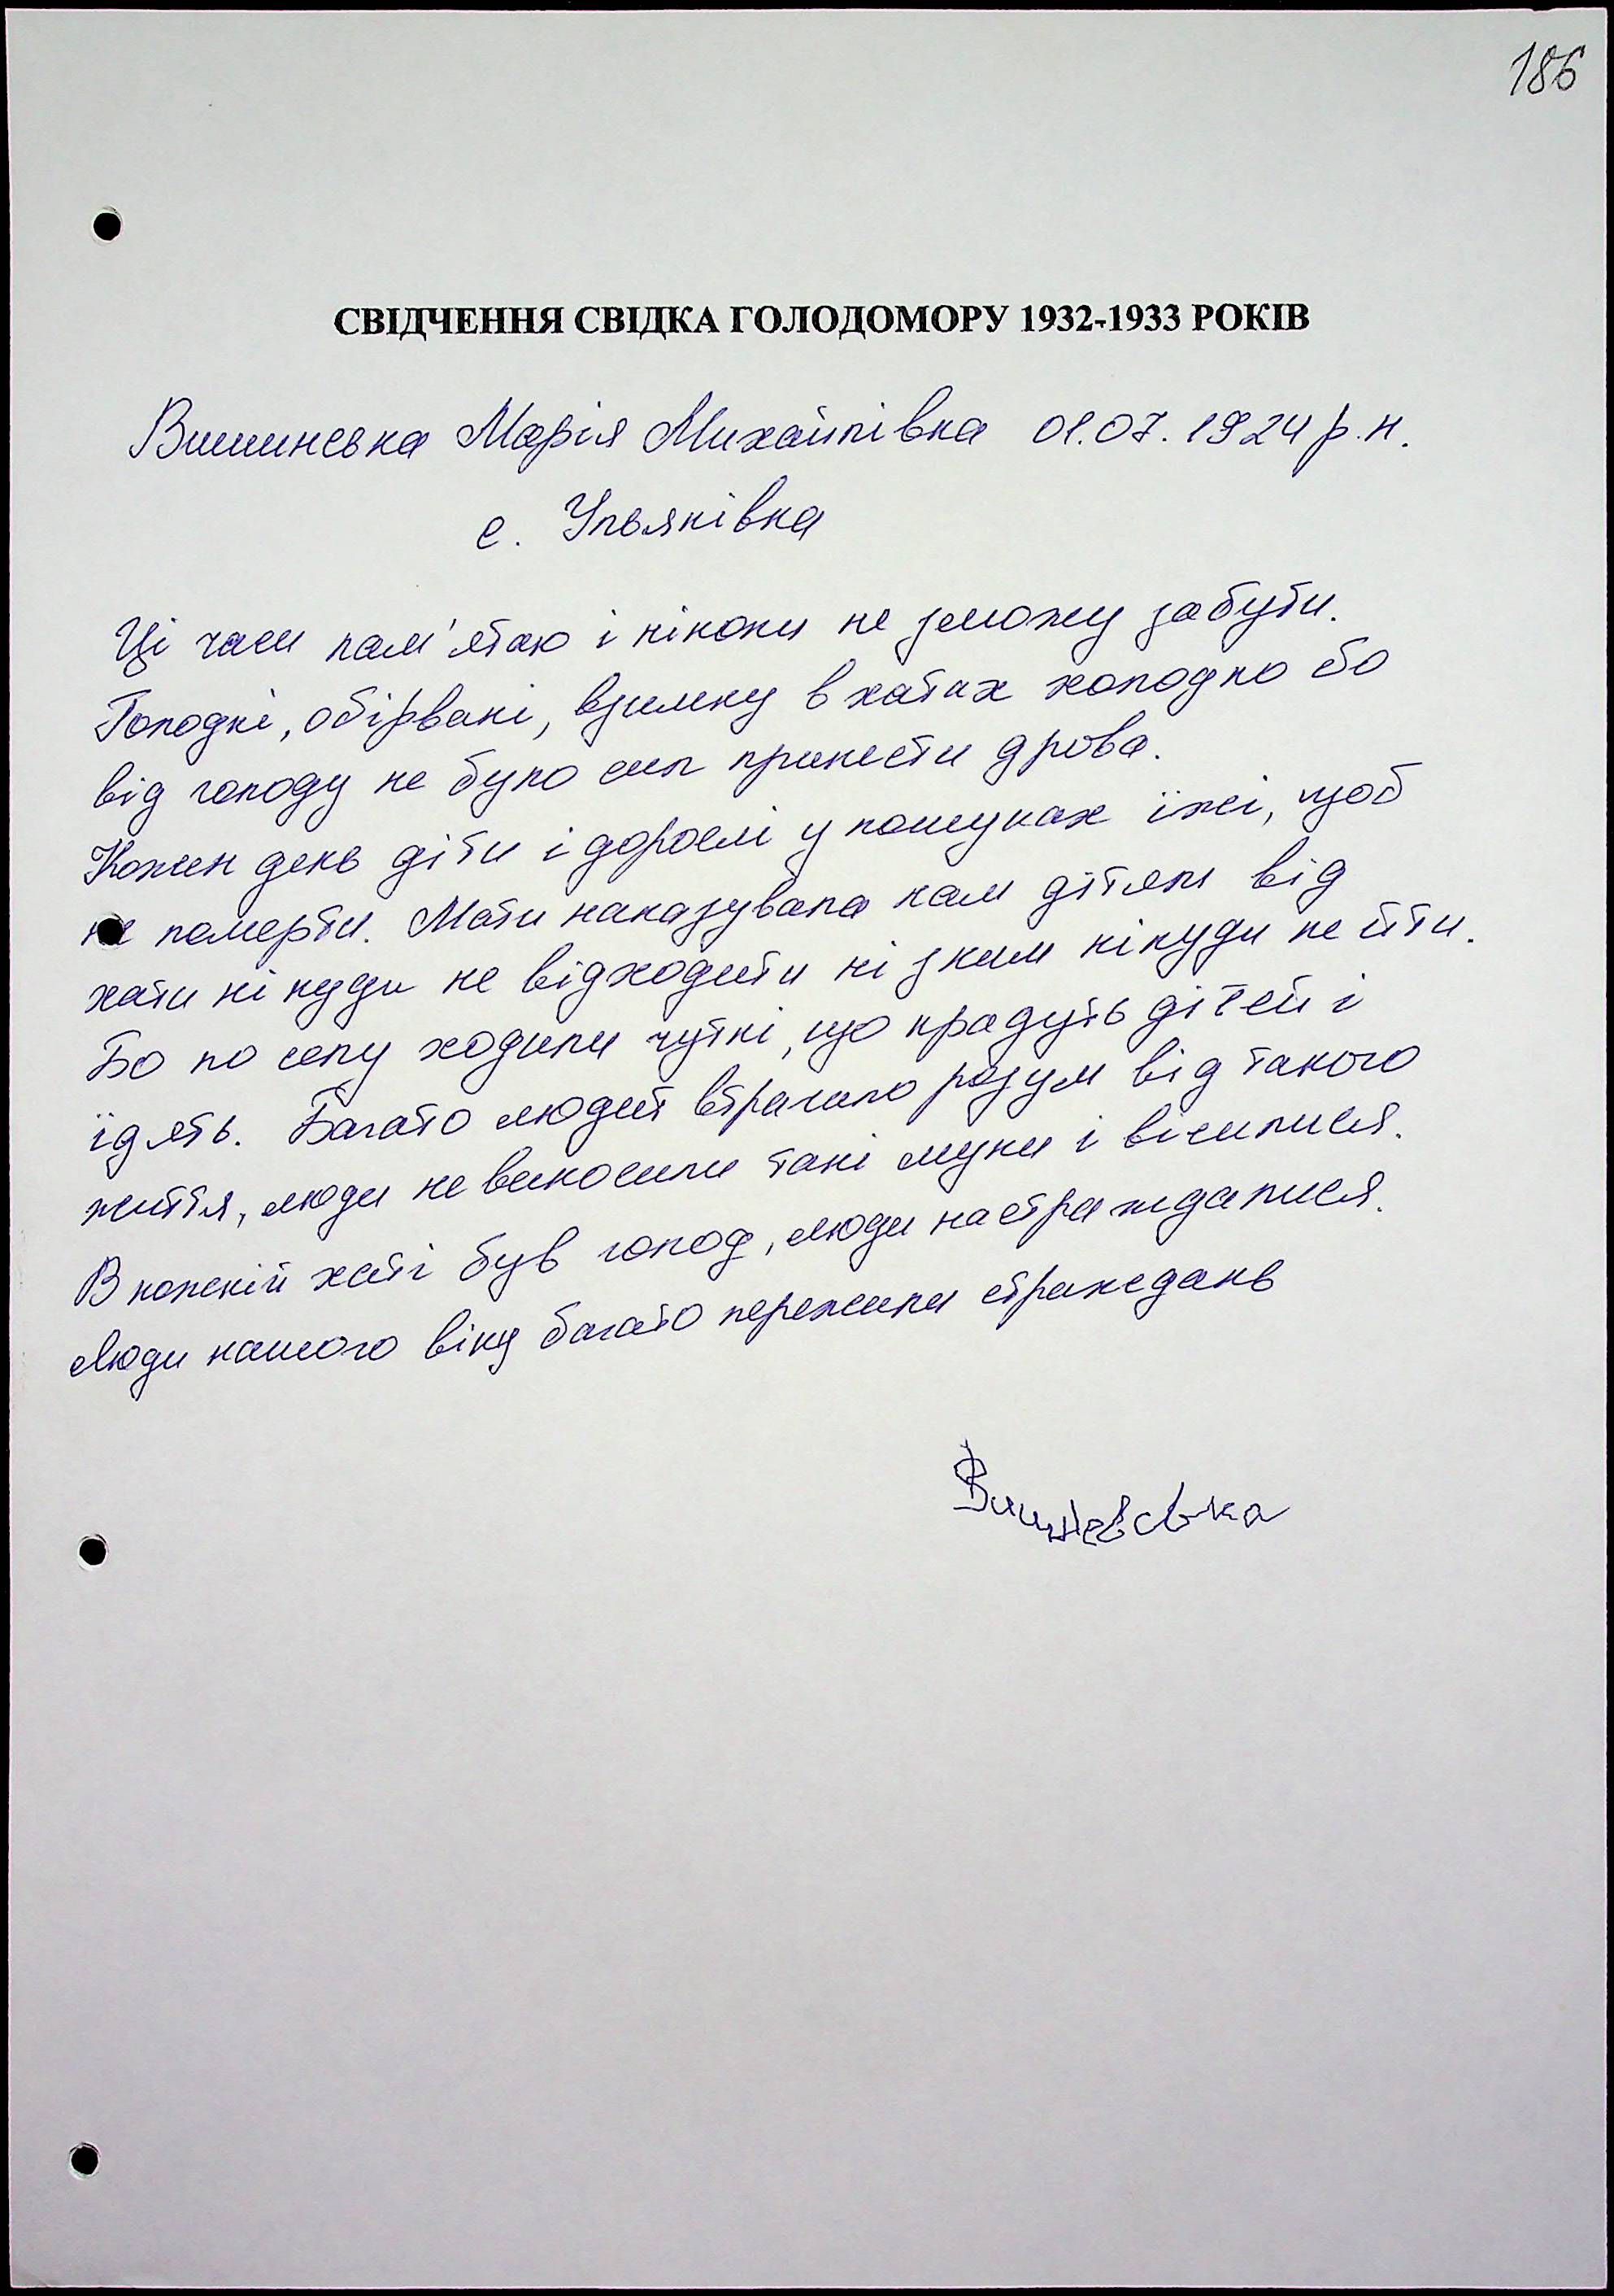 186
СВІДЧЕННЯ СВІДКА ГОЛОДОМОРУ 1932-1933 РОКІВ
Вишинська Марія Михайлівна 01.07.1924 р.н.
с. Ульянівка
Ці часи пам'ятаю і ніколи не зможу забути.
Голодні, обірвані, взимку в хатах холодно бо
від голоду не було сил принести дрова.
Кожен день діти і дорослі у пошуках їжі, щоб
не померти. Мати наказувала нам дітям від
хати нікуди не відходити ні з ким нікуди не йти.
Бо по селу ходили чутки, що крадуть дітей і
їдять. Багато людей втрачало розум від такого
життя, люди не виносили такі муки і вісилися.
В кожній хаті був голод, люди настраждалися.
Люди нашого віку багато пережили страждань